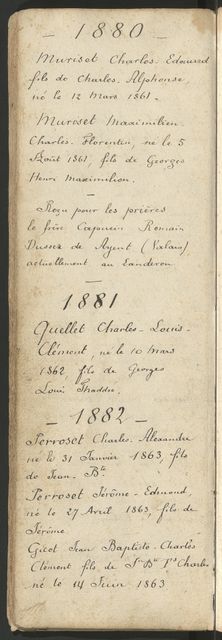 — 1880 —
Muriset Charles-Edouard
fils de Charles-Alphonse,
né le 12 Mars 1861.
Muriset Maximilien-
Charles-Florentin, né le 5
Août 1861, fils de Georges
Henri Maximilien.
—
Reçu pour les prières
le frère Capucin Romain
de Agent (Valais),
actuellement au Landeron
—
1881
Quellet Charles-Louis-
Clément, né le 10 Mars
1862, fils de Georges
Louis Thaddée.
— 1882 —
Perroset Charles-Alexandre
né le 31 Janvier 1863, fils
de Jean-Bte
Perroset Jérôme-Edmond,
né le 27 Avril 1863, fils de
Jérôme
Gicot Jean Baptiste-Charles
Clément fils de Jn Bte Charles
né le 14 Juin 1863